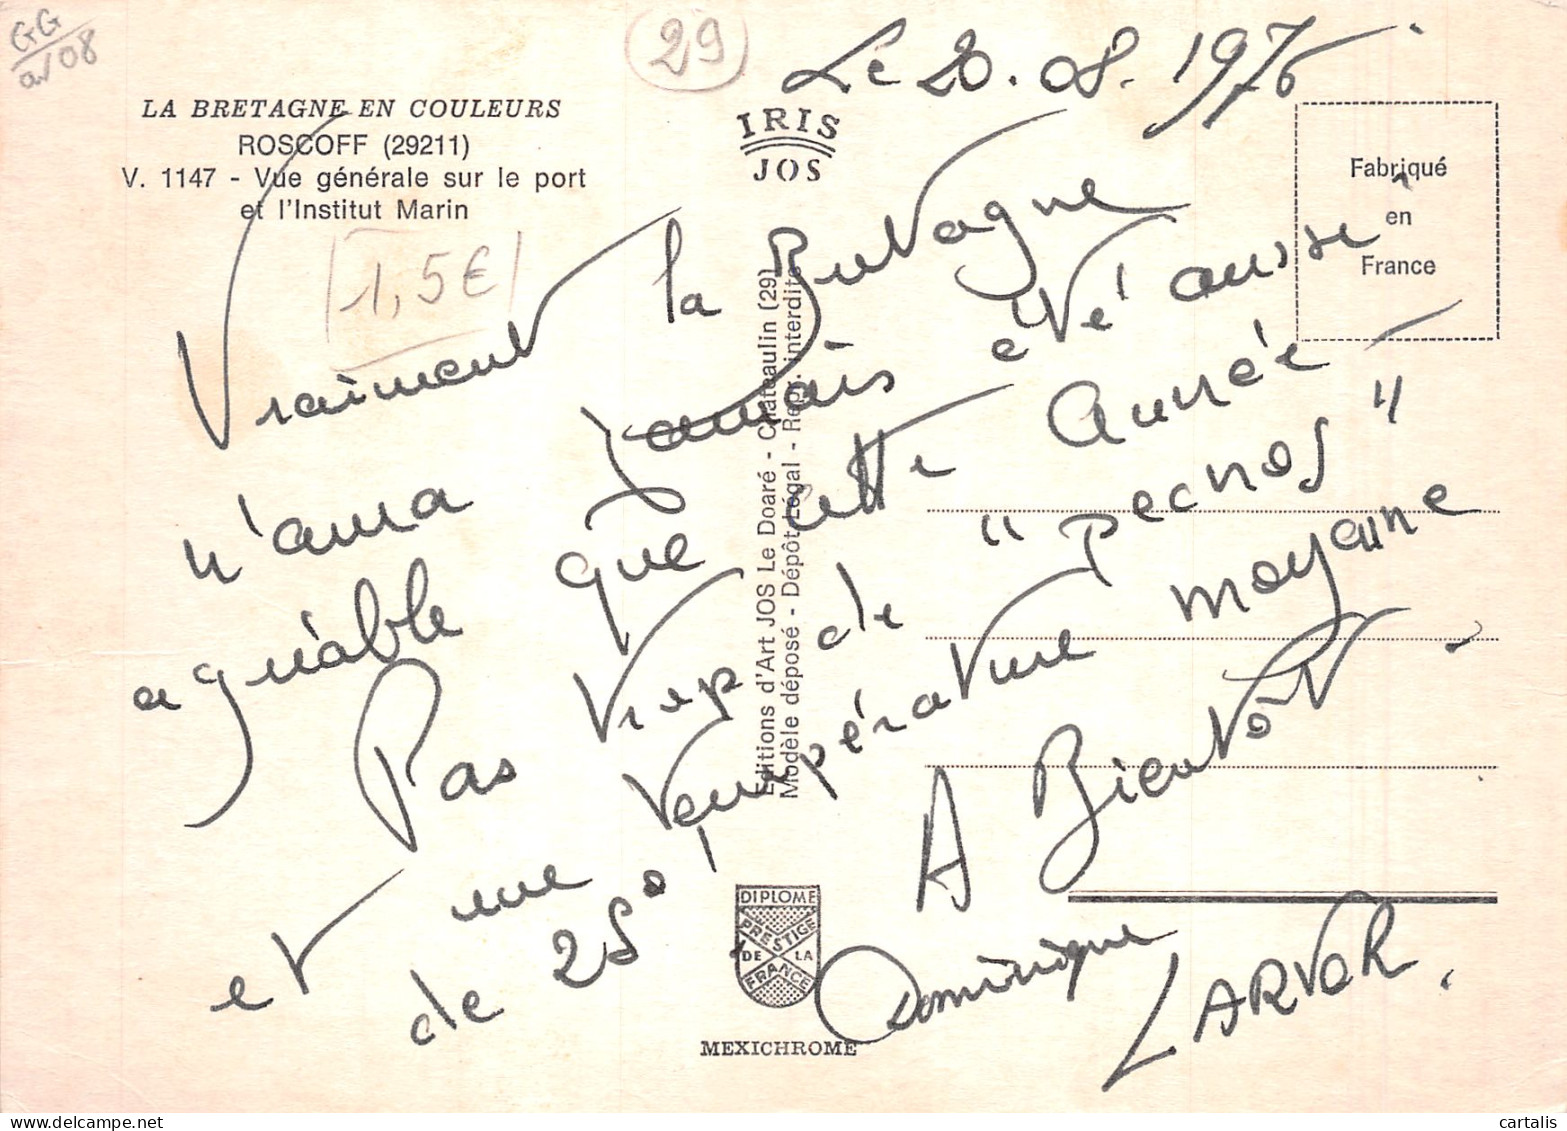 GG
a/08
29
Le 20.08.1976
LA BRETAGNE EN COULEURS
ROSCOFF (29211)
V. 1147 - Vue générale sur le port
et l'Institut Marin
1,5€
IRIS
JOS
Fabriqué
en
France
Vraiment la Bretagne
n'aura jamais été aussi
agréable que cette année
Pas trop de "pecnos"
et une température moyenne
de 25°!
A Bientôt
Dominique
LARVOR.
Editions d'Art JOS Le Doaré - Châteaulin (29)
Modèle déposé - Dépôt Légal - Repr. interdite
DIPLOME
PRESTIGE
DE LA
FRANCE
MEXICHROME
cartalis